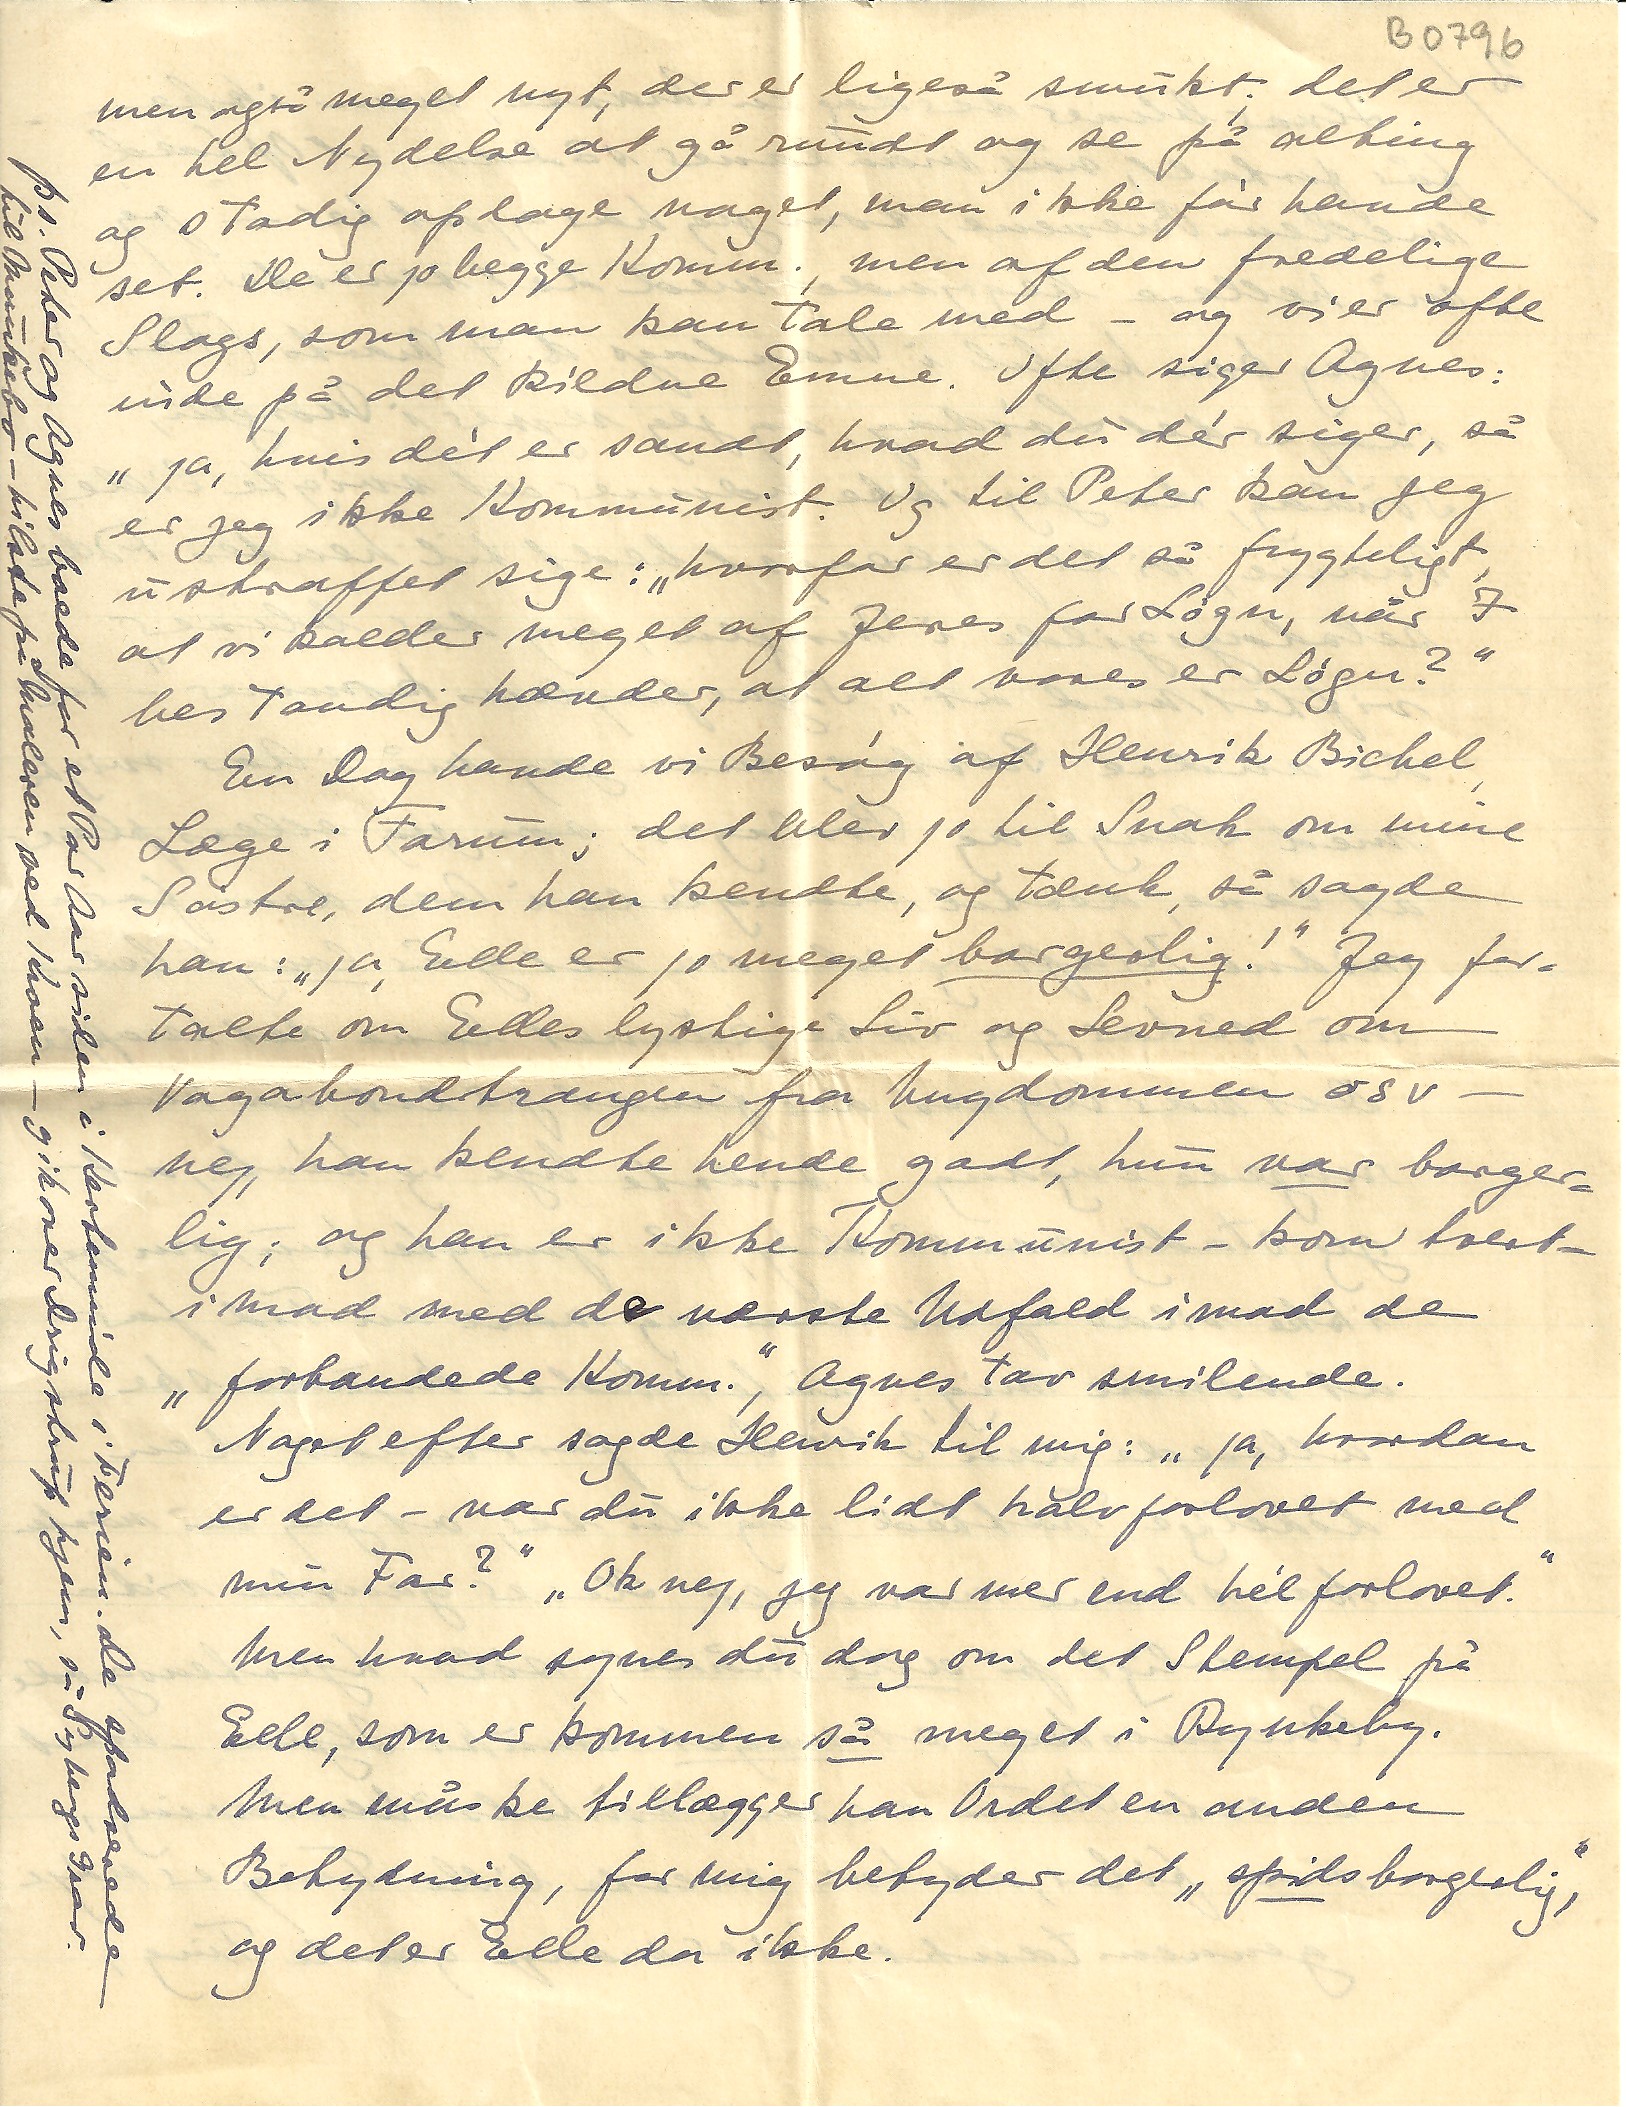 B0796
men også meget nyt, der er ligeså smukt; det er
en hel Nydelse at gå rundt og se på alting
og stadig opdage noget, man ikke før havde
set. De er jo begge Komm., men af den fredelige
Slags, som man kan tale med - og vi er ofte
inde på det kildne Emne. Ofte siger Agnes:
"ja, hvis dét er sandt, hvad du dér siger, så
er jeg ikke Kommunist. Og til Peter kan jeg
ustraffet sige: "hvorfor er det så frygteligt,
at vi kalder meget af Jeres for Løgn, når I
bestandig hævder, at alt vores er Løgn?"
En Dag havde vi Besøg af Henrik Bichel,
Læge i Farum; det blev jo til Snak om mine
Søstre, dem han kendte, og tænk, så sagde
han: "ja, Elle er jo meget borgerlig!" Jeg for=
talte om Elles lystige Liv og Levned om
Vagabondtrangen fra Ungdommen osv -
nej, han kendte hende godt, hun var borger=
lig; og han er ikke Kommunist - kom tvert-
imod med de værste Udfald imod de
"forbandede Komm.", Agnes tav smilende.
Noget efter sagde Henrik til mig: "ja, hvordan
er det - var du ikke lidt halvforlovet med
min Far?" "Ok nej, jeg var mer end hélforlovet."
Men hvad synes du dog om det Stempel på
Elle, som er kommen så meget i Rynkeby.
Men måske tillægger han Ordet en anden
Betydning, for mig betyder det "spidsborgerlig",
og det er Elle da ikke.
ps. Peter og Agnes boede for et Par Aar siden i Kerteminde i Ferien. De spadserede
til Munkebo - hilste på Maleren ved Kroen - gik over Drigstrup hjem, så Sybergs Grav.